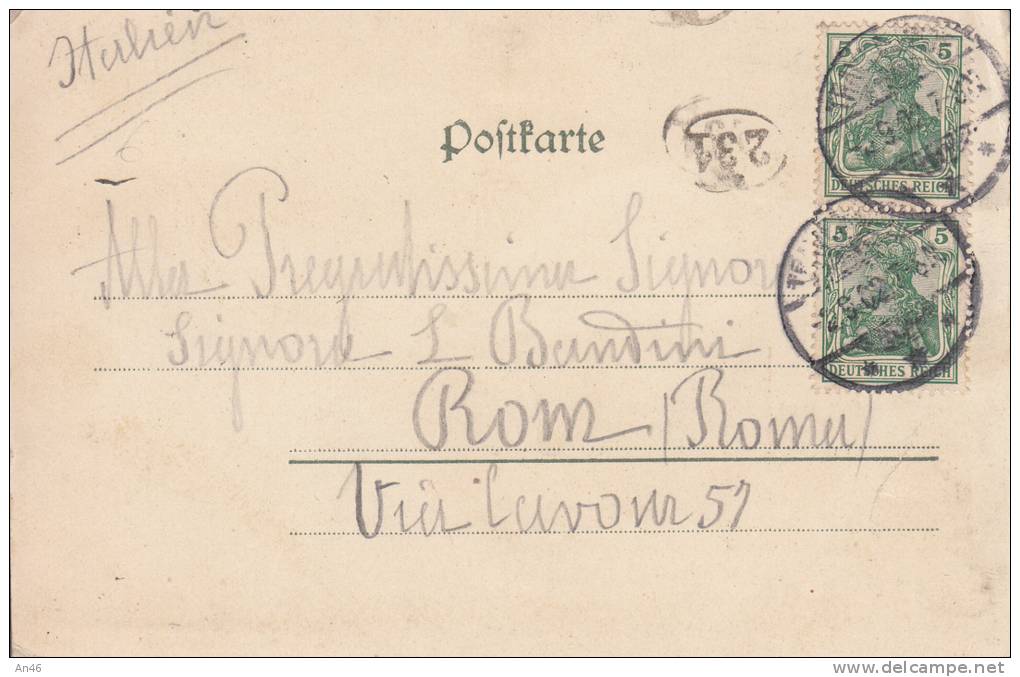 Italien
Postkarte
231
5 5
DEUTSCHES REICH
5 5
DEUTSCHES REICH
Alla Pregiatissima Signora
Signora L Bandini
Rom (Roma)
Via Cavour 57
An46
www.delcampe.net